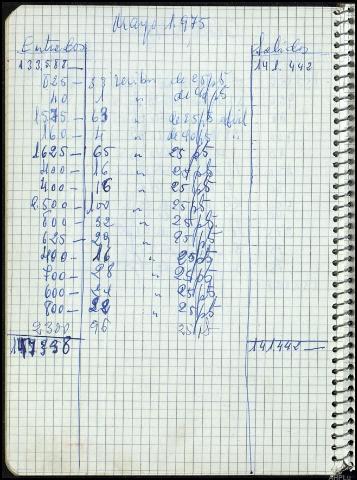 Mayo 1.975
Entradas Salidas
133,588— 141.442—
825— 33 recibos de 25 pts
40 1 " de 40 pts
1575— 63 " de 25 pts abril
160— 4 " de 40 pts "
1625— 65 " 25 pts
400— 16 " 25 pts
400— 16 " 25 pts
2.500— 100 " 25 pts
800— 32 " 25 pts
625— 29 " 25 pts
400— 16 " 25 pts
700— 28 " 25 pts
600— 24 " 25 pts
800— 22 " 25 pts
2300 96 25 pts
141442—
AHPLU